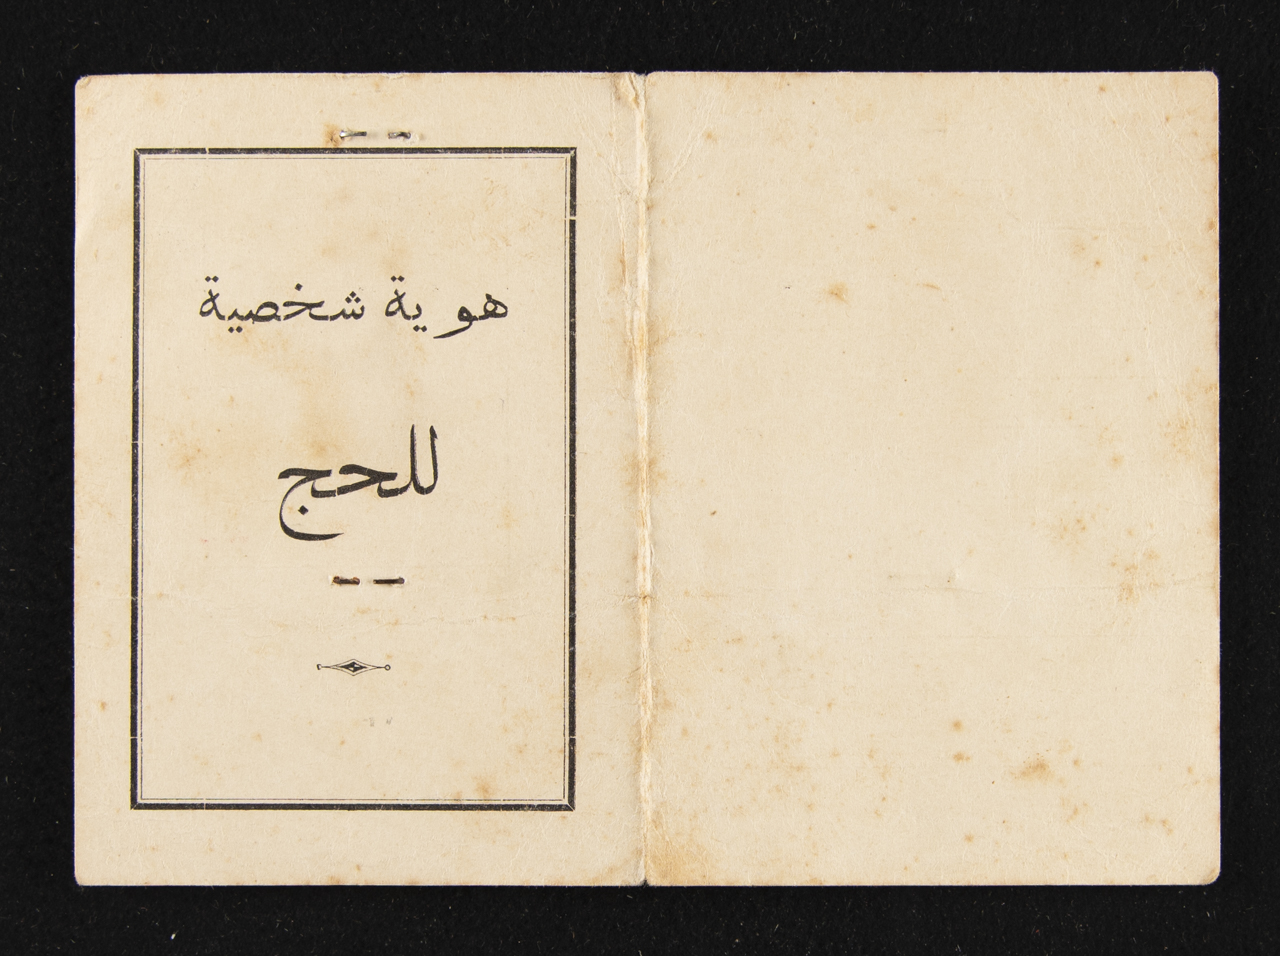 هوية شخصية
للحج